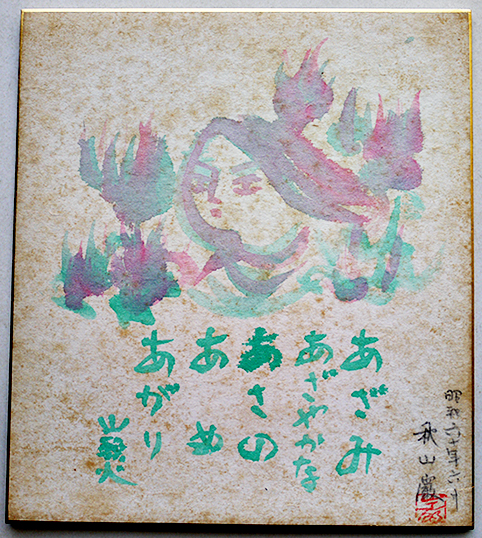 あざみ
あざやかな
あさの
あめ
あがり
山頭火
昭和六十年六月
秋山巌